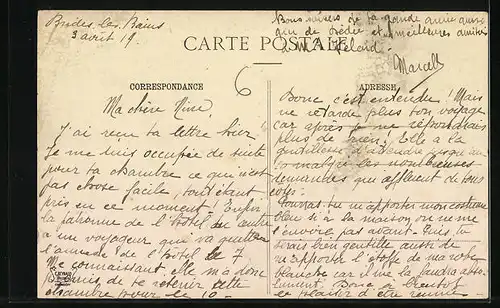 Brides-les-Bains
3 avril 19.
Bons baisers de ta grande amie ainsi
que de et meilleures amitiés
à
Marcelle
CARTE POSTALE
CORRESPONDANCE
ADRESSE
6
Ma chère
J'ai reçu ta lettre hier!
Je me suis occupée de suite
pour ta chambre ce qui n'est
pas chose facile, tout étant
pris en ce moment! Enfin
la patronne de l'hôtel du
a un voyageur qui va quitter
l'annexe de l'hôtel le 7
Me connaissant, elle m'a donc
promis de te retenir cette
chambre pour le 10.
Donc c'est entendu! Mais
ne retarde plus ton voyage
car après je ne répondrais
plus de rien. Elle a la
gentillesse d'attendre jusqu'au
10 malgré les nombreuses
demandes qui affluent de tous
côtés.
Pourras-tu m'apporter mon costume
bleu si à la maison on ne me
l'envoie pas avant. Puis, tu
serais bien gentille aussi de
m'apporter l'étoffe de ma robe
blanche car il me la faudra abso-
lument. Donc à bientôt
le plaisir d'être réunies